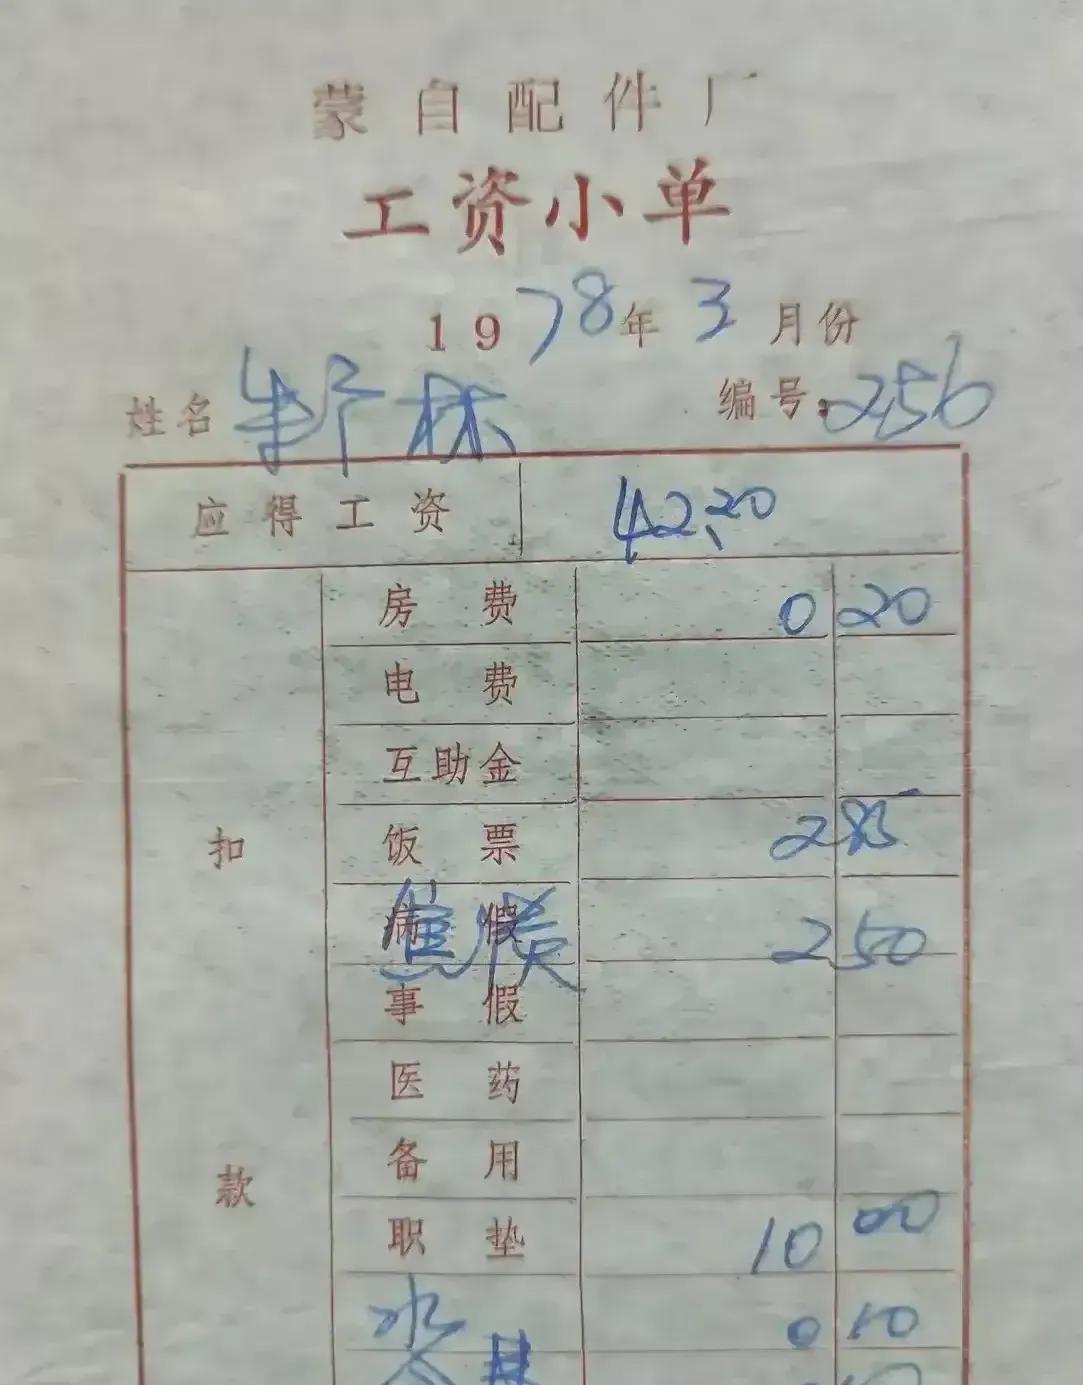 蒙自配件厂
工资小单
1978年 3月份
姓名 林 编号:256
应得工资 42.20
扣款
房费 0 20
电费
互助金
饭票 2 85
病假 2 50
事假
医药
备用
职垫 10 00
水 0 10